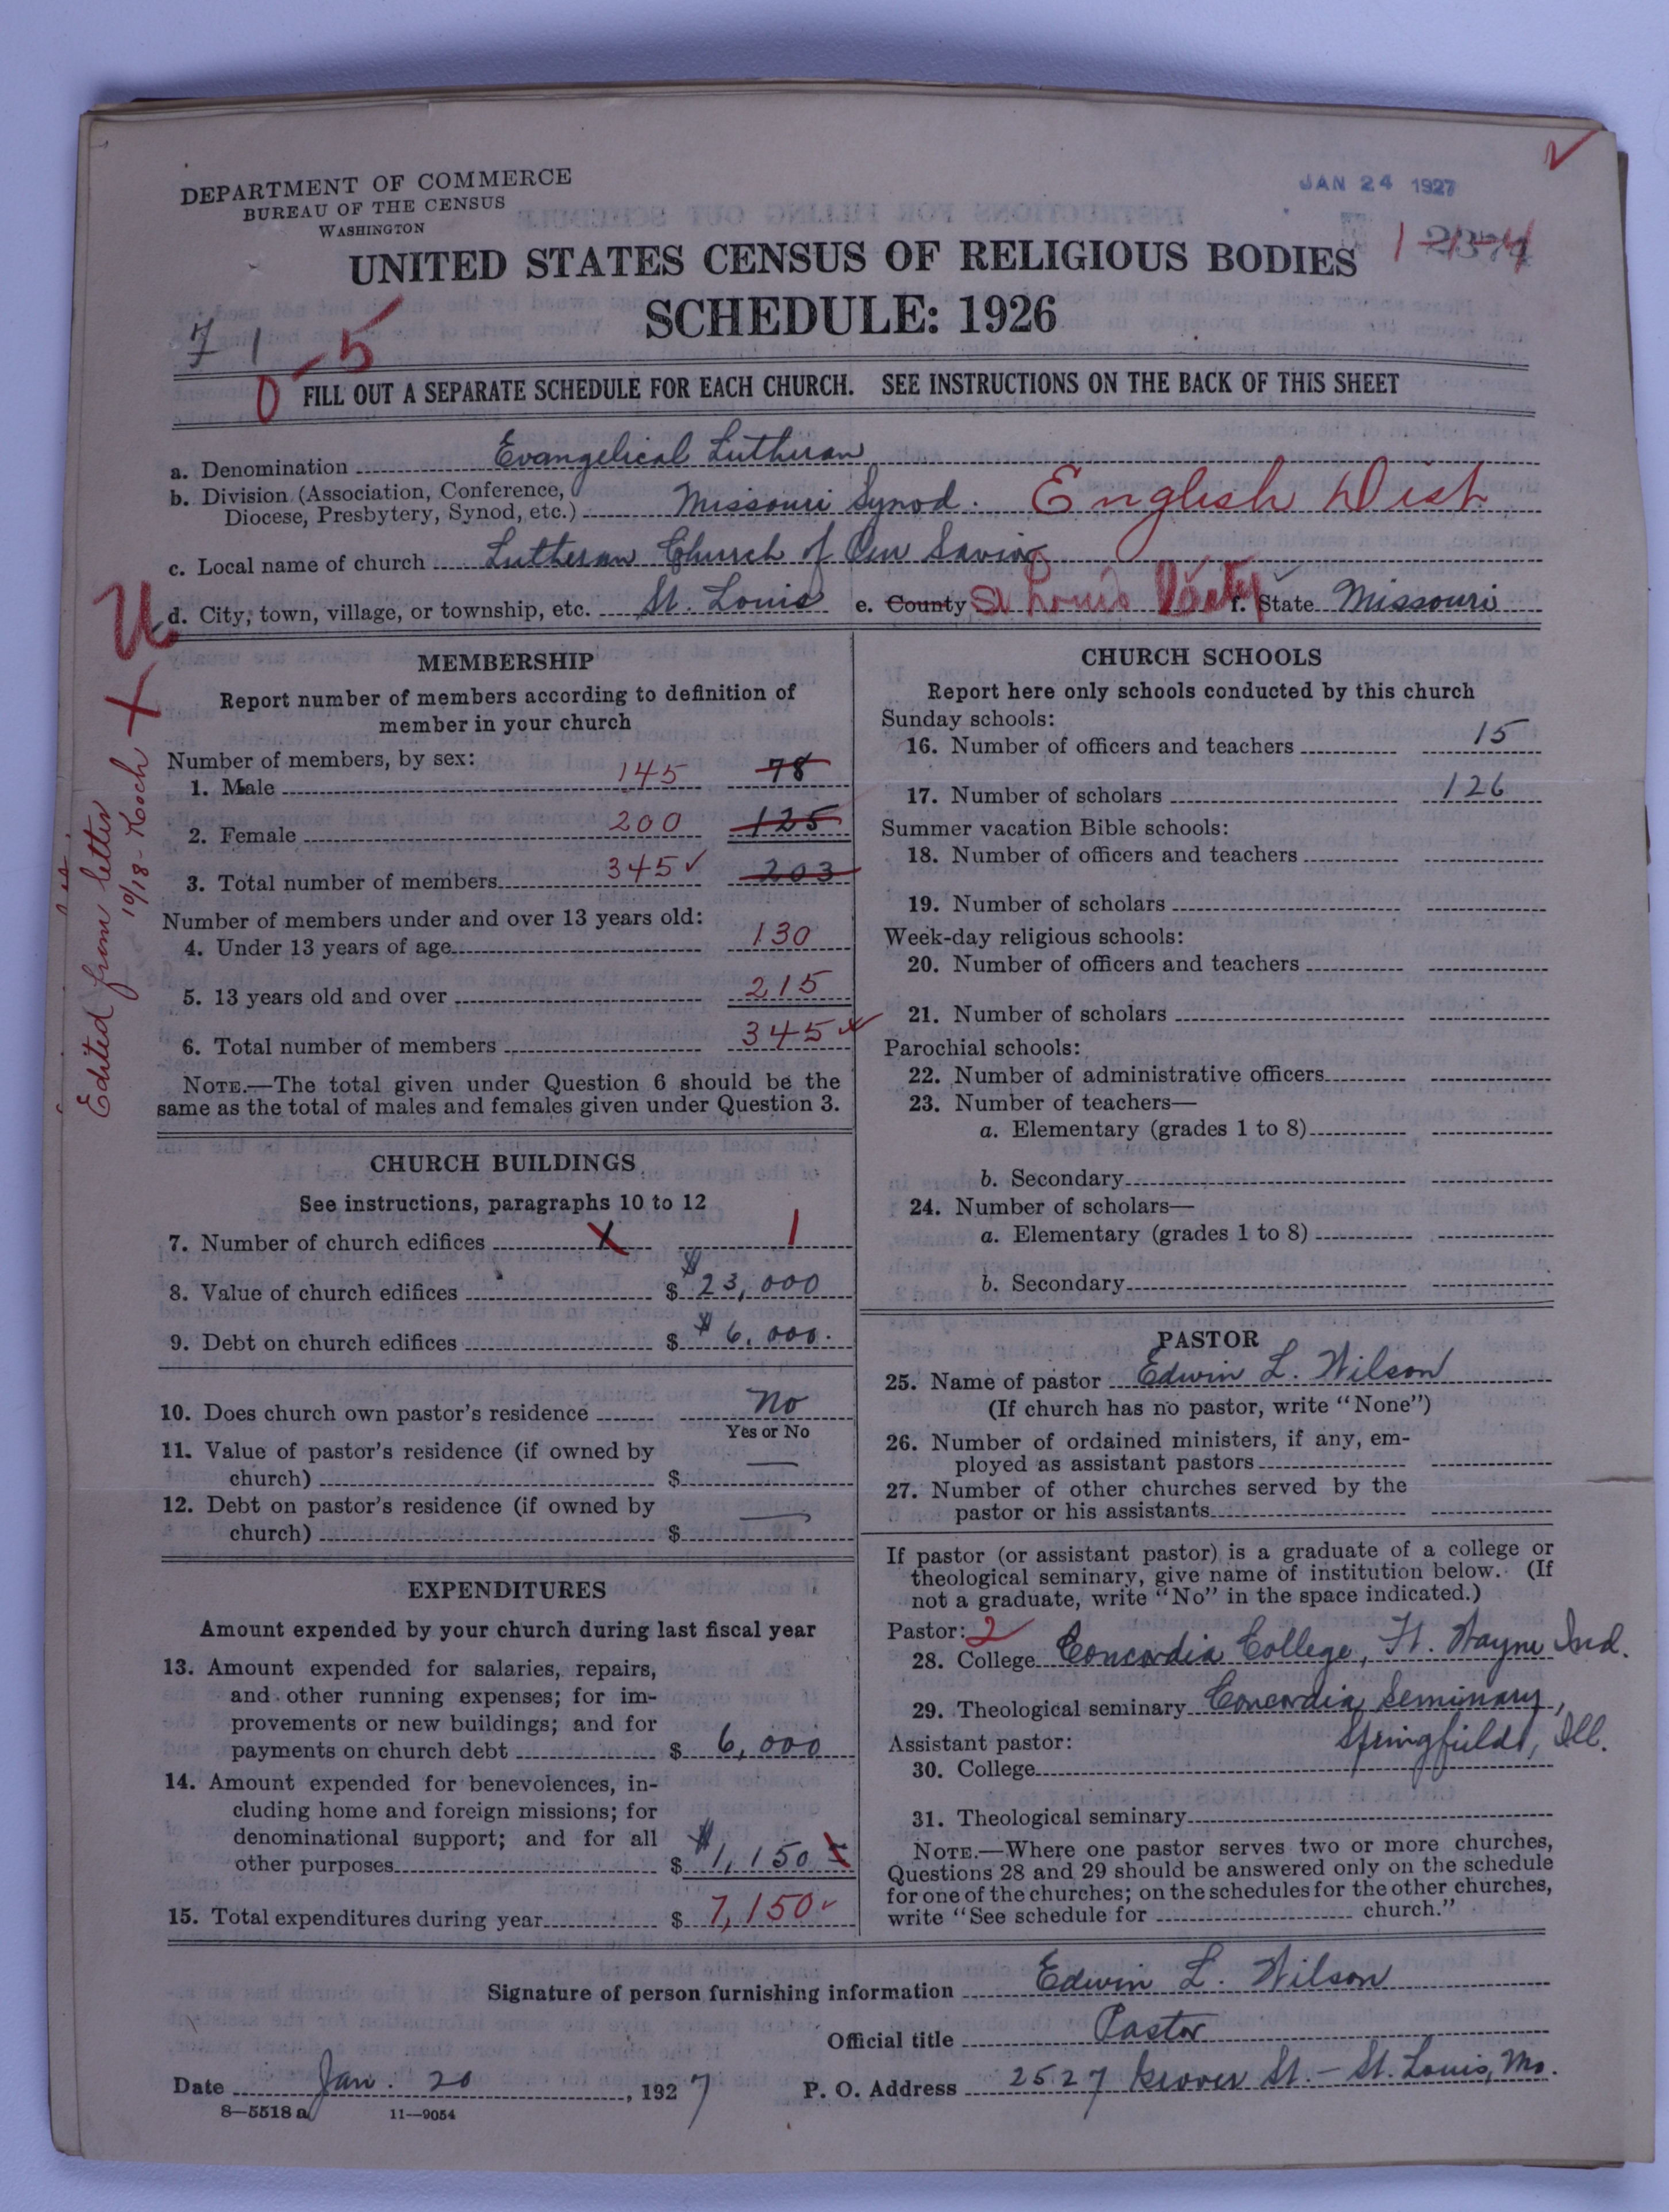 DEPARTMENT OF COMMERCE
BUREAU OF THE CENSUS
WASHINGTON
JAN 24 1927
UNITED STATES CENSUS OF RELIGIOUS BODIES
SCHEDULE: 1926
71
0-5
FILL OUT A SEPARATE SCHEDULE FOR EACH CHURCH. SEE INSTRUCTIONS ON THE BACK OF THIS SHEET
a. Denomination Evangelical Lutheran
b. Division (Association, Conference, Diocese, Presbytery, Synod, etc.) Missouri Synod. English Dist
c. Local name of church Lutheran Church of Our Savior
d. City, town, village, or township, etc. St. Louis e. County St Louis City f. State Missouri
U
X
Edited from letter
10/18 - Koch
MEMBERSHIP
Report number of members according to definition of
member in your church
Number of members, by sex:
1. Male 145 78
2. Female 200 125
3. Total number of members 345 ✓ 203
Number of members under and over 13 years old:
4. Under 13 years of age 130
5. 13 years old and over 215
6. Total number of members 345 ✓
NOTE.—The total given under Question 6 should be the
same as the total of males and females given under Question 3.
CHURCH BUILDINGS
See instructions, paragraphs 10 to 12
7. Number of church edifices X 1
8. Value of church edifices $ $23,000
9. Debt on church edifices $ $6,000.
10. Does church own pastor's residence No
Yes or No
11. Value of pastor's residence (if owned by
church) $ —
12. Debt on pastor's residence (if owned by
church) $ —
EXPENDITURES
Amount expended by your church during last fiscal year
13. Amount expended for salaries, repairs,
and other running expenses; for im-
provements or new buildings; and for
payments on church debt $ 6,000
14. Amount expended for benevolences, in-
cluding home and foreign missions; for
denominational support; and for all
other purposes $ $1,150
15. Total expenditures during year $ 7,150 ✓
CHURCH SCHOOLS
Report here only schools conducted by this church
Sunday schools:
16. Number of officers and teachers 15
17. Number of scholars 126
Summer vacation Bible schools:
18. Number of officers and teachers
19. Number of scholars
Week-day religious schools:
20. Number of officers and teachers
21. Number of scholars
Parochial schools:
22. Number of administrative officers
23. Number of teachers—
a. Elementary (grades 1 to 8)
b. Secondary
24. Number of scholars—
a. Elementary (grades 1 to 8)
b. Secondary
PASTOR
25. Name of pastor Edwin L. Wilson
(If church has no pastor, write "None")
26. Number of ordained ministers, if any, em-
ployed as assistant pastors
27. Number of other churches served by the
pastor or his assistants
If pastor (or assistant pastor) is a graduate of a college or
theological seminary, give name of institution below. (If
not a graduate, write "No" in the space indicated.)
Pastor: 2
28. College Concordia College, Ft. Wayne Ind.
29. Theological seminary Concordia Seminary,
Springfield, Ill.
Assistant pastor:
30. College
31. Theological seminary
NOTE.—Where one pastor serves two or more churches,
Questions 28 and 29 should be answered only on the schedule
for one of the churches; on the schedules for the other churches,
write "See schedule for church."
Signature of person furnishing information Edwin L. Wilson
Official title Pastor
Date Jan. 20, 1927 P. O. Address 2527 St. - St. Louis, Mo.
8—5518 a 11—9054